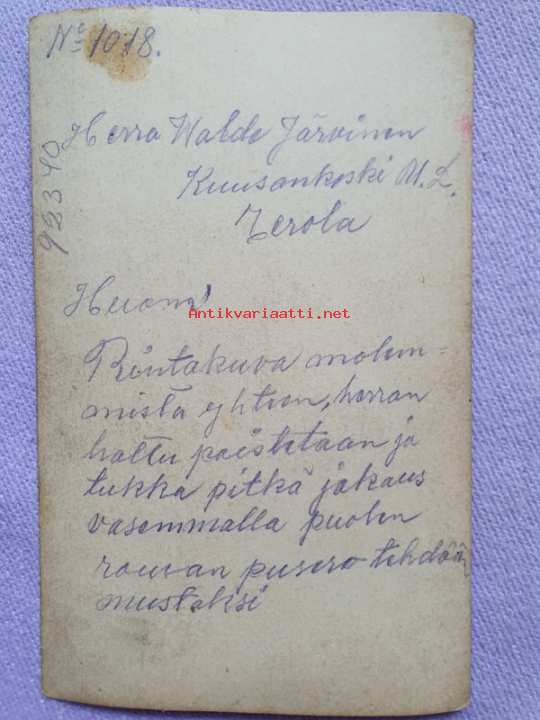 No 1018.
92340
Herra Waldo Järvinen
Kuusankoski M. L.
Terola
Huom!
Antikvariaatti.net
Rintakuva molem-
mista yhteen, herran
hattu poistetaan ja
tukka pitkä jakaus
vasemmalla puolen
rouvan pusero tehdään
mustaksi